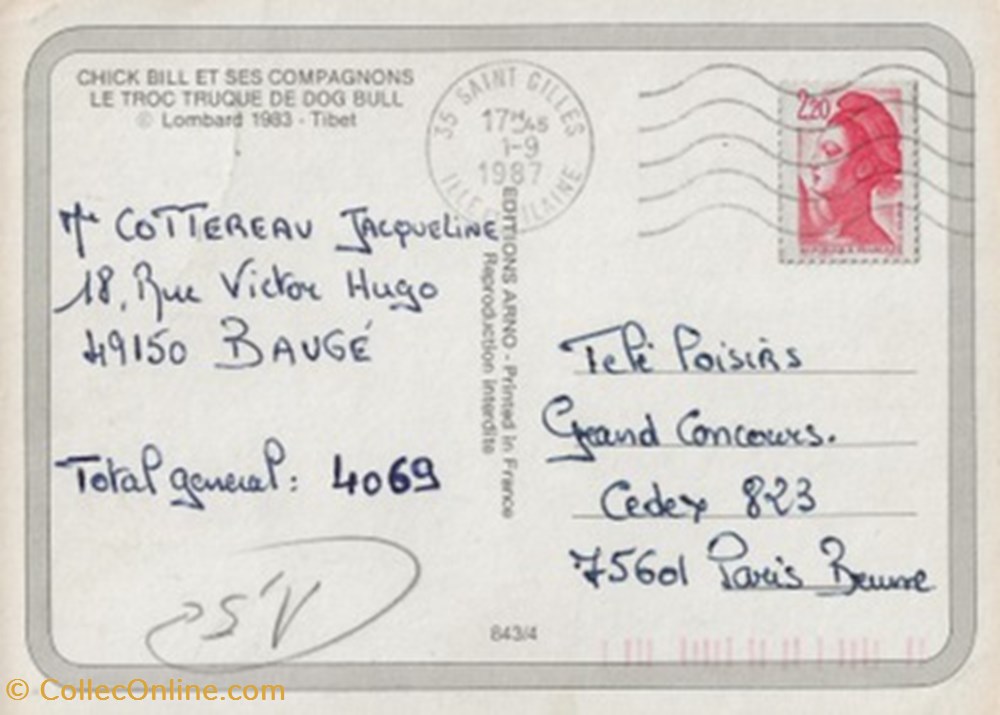 CHICK BILL ET SES COMPAGNONS
LE TROC TRUQUE DE DOG BULL
© Lombard 1983 - Tibet
35 SAINT GILLES
17H45
1-9
1987
ILLE ET VILAINE
2,20
REPUBLIQUE FRANÇAISE
Me COTTEREAU JACQUELINE
18, Rue Victor Hugo
49150 BAUGÉ
Total general : 4069
EDITIONS ARNO - Printed in France
Reproduction interdite
Télé Loisirs
Grand Concours.
Cedex 823
75601 Paris Brune
843/4
© CollecOnline.com